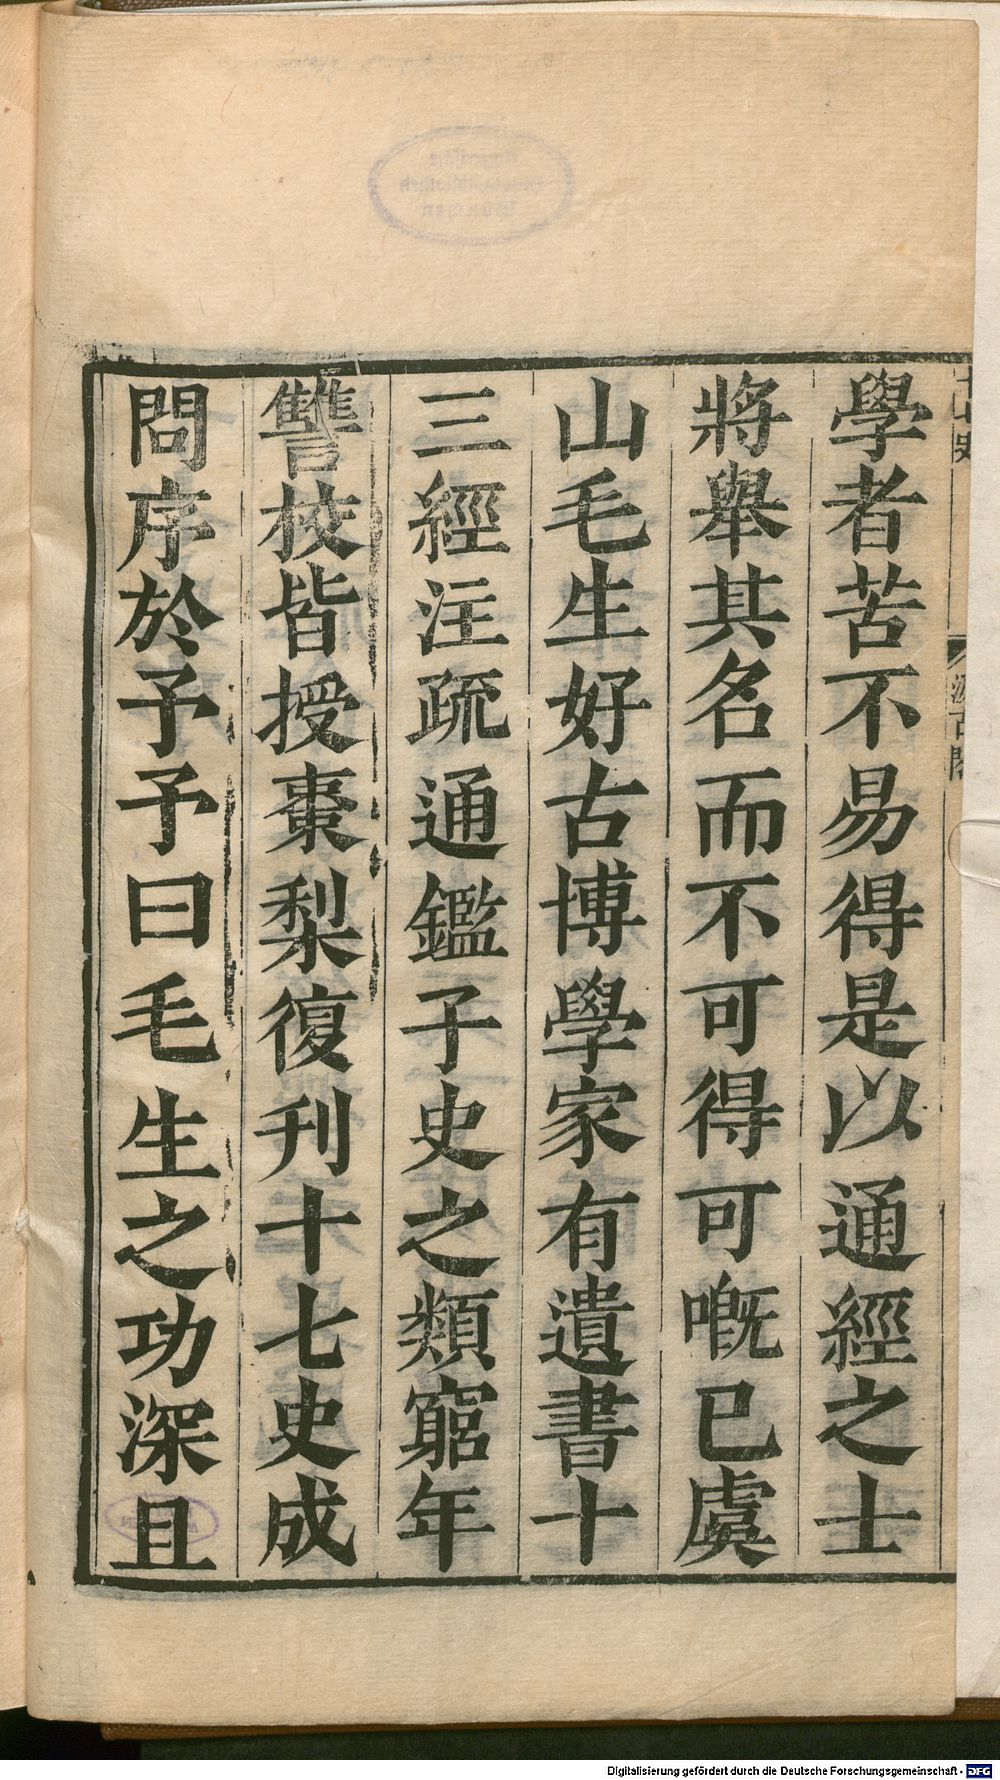 學者苦不易得是以通經之士
將舉其名而不可得可嘅已虞
山毛生好古博學家有遺書十
三經注疏通鑑子史之類窮年
讐校皆授棗梨復刊十七史成
問序於予予曰毛生之功深且
Digitalisierung gefördert durch die Deutsche Forschungsgemeinschaft - DFG